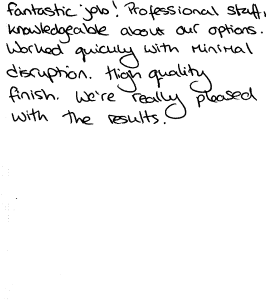 fantastic job! Professional staff,
knowledgeable about our options.
Worked quickly with minimal
disruption. High quality
finish. We're really pleased
with the results.